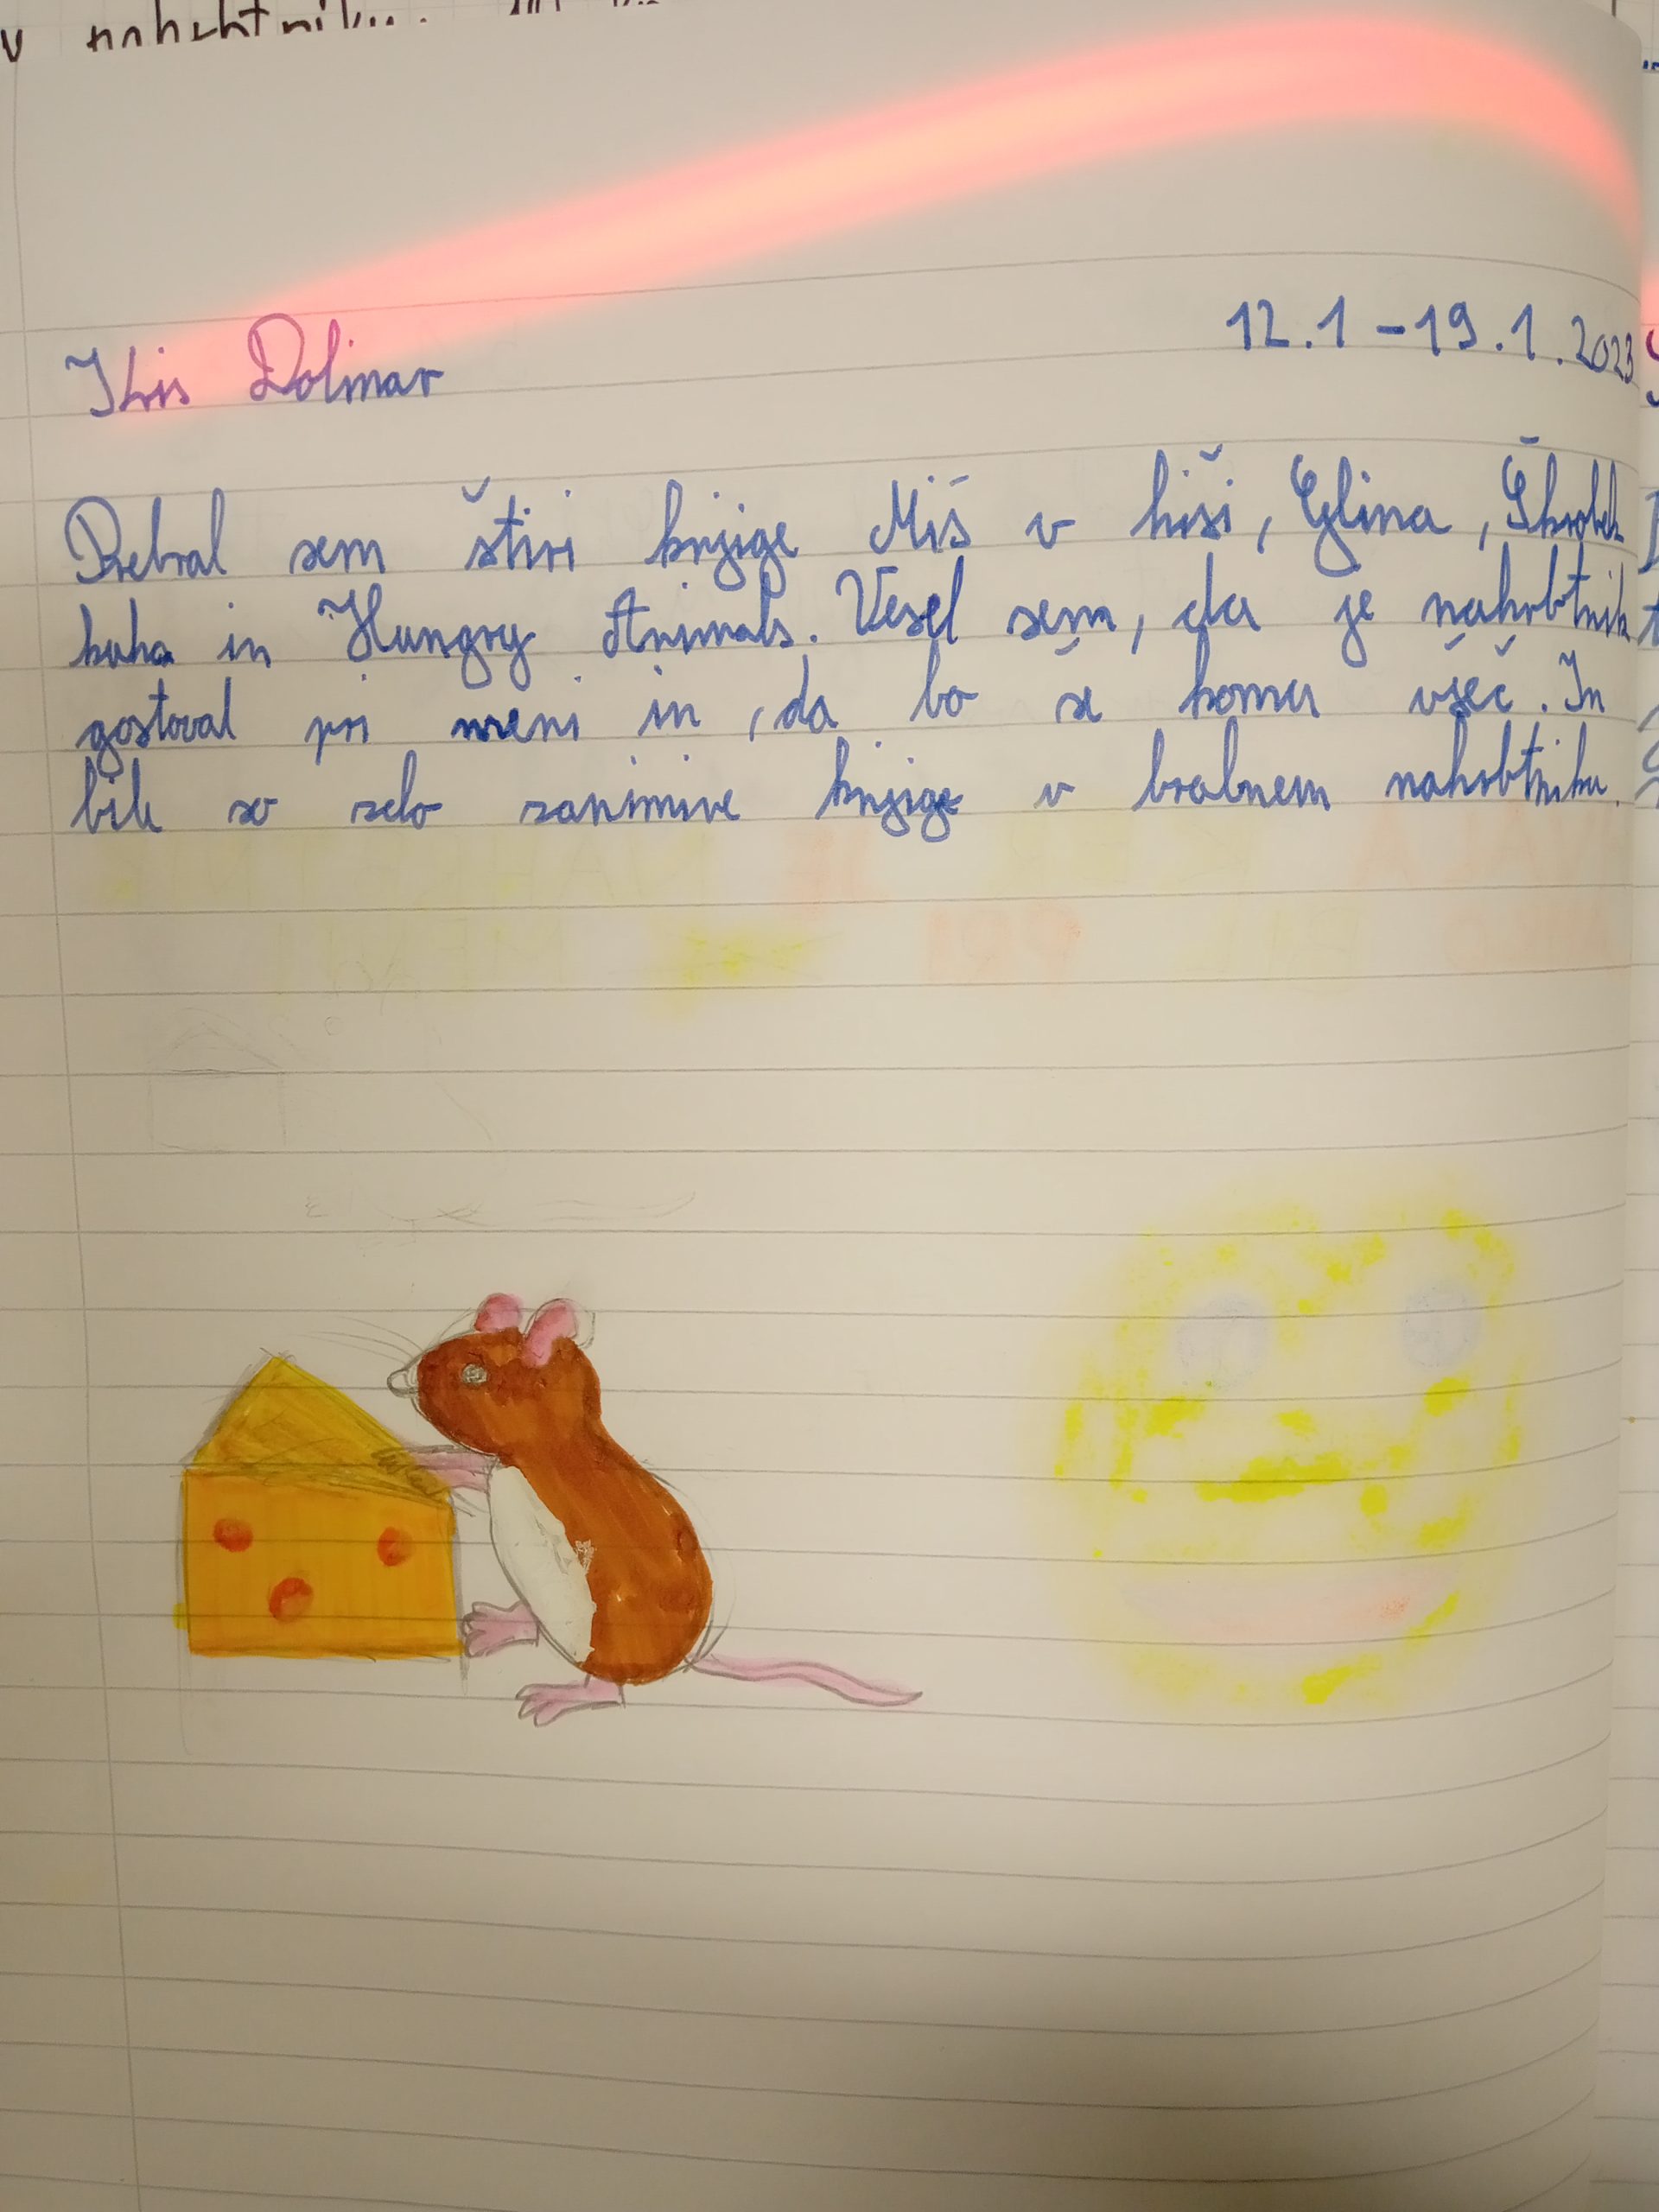 Dolinar 12.1-19.1.2023
Prebral sem štiri knjige Miš v hiši, Glina, Škratek
kuha in Hungry Animals. Vesel sem, da je nahrbtnik
gostoval pri meni in, da bo še komu všeč. In
bile so zelo zanimive knjige v bralnem nahrbtniku.